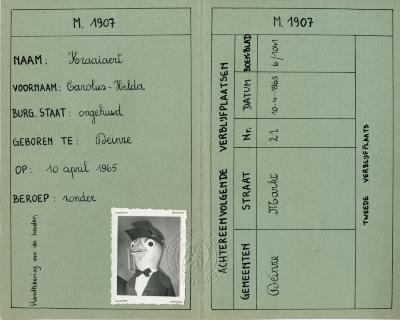 M. 1907
NAAM: Kraaiaert
VOORNAAM: Carolus-Hilda
BURG. STAAT: ongehuwd
GEBOREN TE: Deinze
OP: 10 april 1965
BEROEP: zonder
Handtekening van de houder,
M. 1907
ACHTEREENVOLGENDE VERBLIJFPLAATSEN
GEMEENTEN STRAAT Nr. DATUM BOEK-BLAD
Deinze Markt 21 10-4-1965 6/1041
TWEEDE VERBLIJFPLAATS